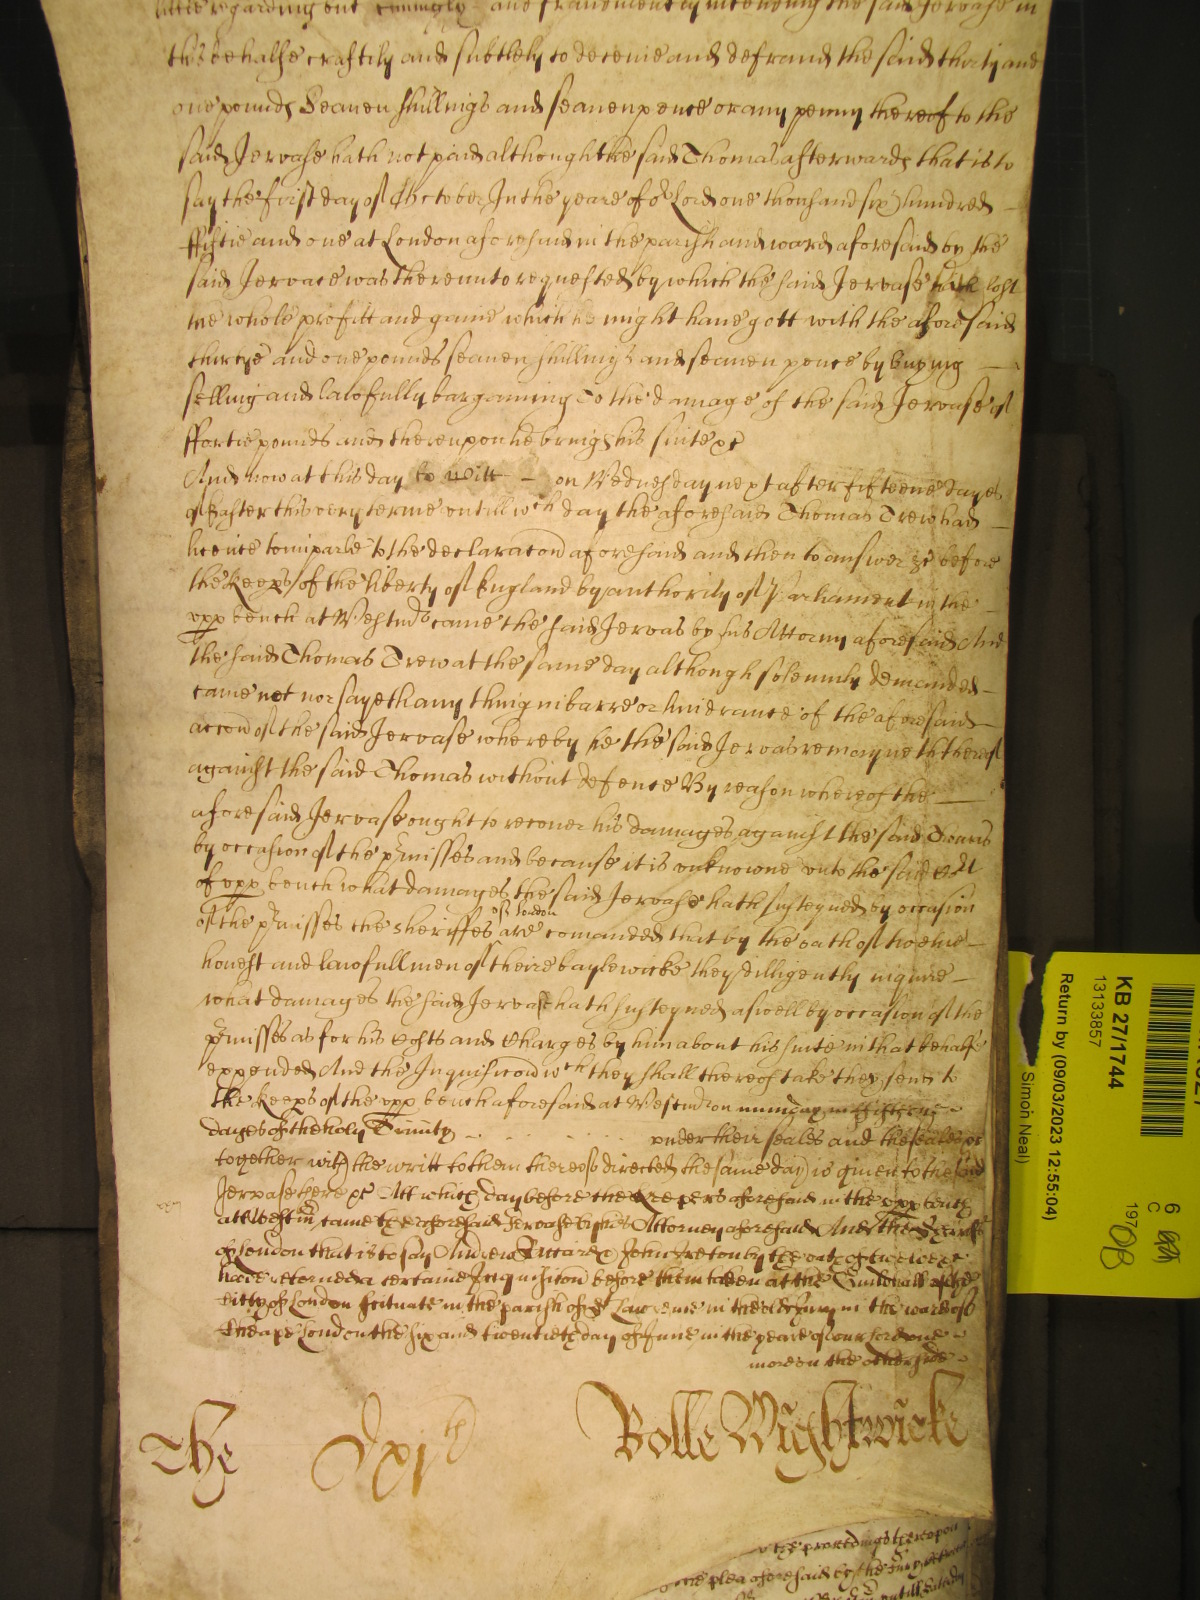 little regarding but cuningly and fraudulently intending the said Jervase in
this behalfe craftily and subtlely to deceive and defraud the said thirty and
one pounds Seaven shillings and seaven pence or any penny thereof to the
said Jervase hath not paid although the said Thomas afterwards that is to
say the first day of October In the yeare of or Lord one thousand six hundred
ffiftie and one at London aforesaid in the parish and ward aforesaid by the
said Jervace was thereunto requested by which the said Jervase hath lost
the whole profitt and gaine which he might have gott with the aforesaid
thirtye and one pounds seaven shillings and seaven pence by buying
selling and lawfully bargaining To the damage of the said Jervase of
ffortie pounds and thereupon he brings his suite &c
And now at this day to witt - on Wednesday next after fifteene dayes
of Easter this very terme untill wch day the aforesaid Thomas Trew had
licence to imparle to the declaracon aforesaid and then to answer &c before
the Keeps of the liberty of England by authority of Parliament in the
upp bench at Westmr came the said Jervas by his Attorny aforesaid And
the said Thomas Trew at the same day although solemnly demanded
came not nor sayeth any thing in barre or hinderance of the aforesaid
accon of the said Jervase whereby he the said Jervas remayneth thereof
against the said Thomas without defence By reason whereof the
aforesaid Jervase ought to recover his damages against the said Thomas
by occasion of the pmisses and because it is unknowne unto the said Crt
of upp bench what damages the said Jervase hath susteyned by occasion
of the pmisses the sheriffes of London are comanded that by the oath of twelve
honest and lawfull men of theire baylewicke they dilligently inquire
what damages the said Jervase hath susteyned aswell by occasion of the
pmisses as for his Costs and Charges by him about his suite in that behalfe
expended And the Inquisicon wch they shall thereof take they send to
the Keeps of the upp bench aforesaid at Westmr on munday in fifteene
dayes of the holy Trinity - under their seales and the seales &c
together with the writt to them thereof directed the same day is given to the said
Jervase here &c Att which day before the Keepers aforesaid in the upp bench
at Westmr came the aforesaid Jervase by his Attorney aforesaid And the Sheriffs
of London that is to say Andrew Ricard & John Ireton by the oath of twelve &c
have retorned a certaine Inquisicon before them taken at the Guildhall of the
Citty of London scituate in the parish of St Lawrence in the old Jury in the ward of
Cheape London the six and twentieth day of June in the yeare of our Lord one
more on the other side
The Dxjth Rolle Wightwicke
the proceedings thereupon
the plea aforesaid by the
untill Saturday
KB 27/1744
13133857
Return by (09/03/2023 12:55:04)
Simon Neal)
6
C